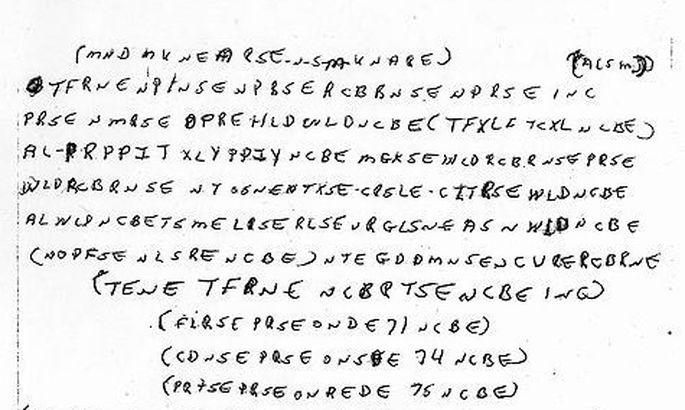 (MND MKNEARSE-N-S-M-KNARE) (ACSM)
TFRNE NPTNSE NPBSE RCBBNSE NPRSE INC
PRSE NMRSE OPREHLD WLD NCBE (TFXLF TCXL NCBE)
AL-PRPPIT XLY PPIY NCBE MGKSE WLD RCBRNSE PRSE
WLD RCBRNSE NT SGNE NTXSE-CRSLE-CITRSE WLD NCBE
AL WLD NCBE TSME LRSE RLSE URGLSNE AS N WLD NCBE
(NOPFSE NLSRE NCBE) NTE GDDMNSE NCURE RCBRNE
(TENE TFRNE NCBRTSE NCBE INC)
(FLRSE PRSE ONDE 71 NCBE)
(CDNSE PRSE ONSDE 74 NCBE)
(PRTSE PRSE ONREDE 75 NCBE)